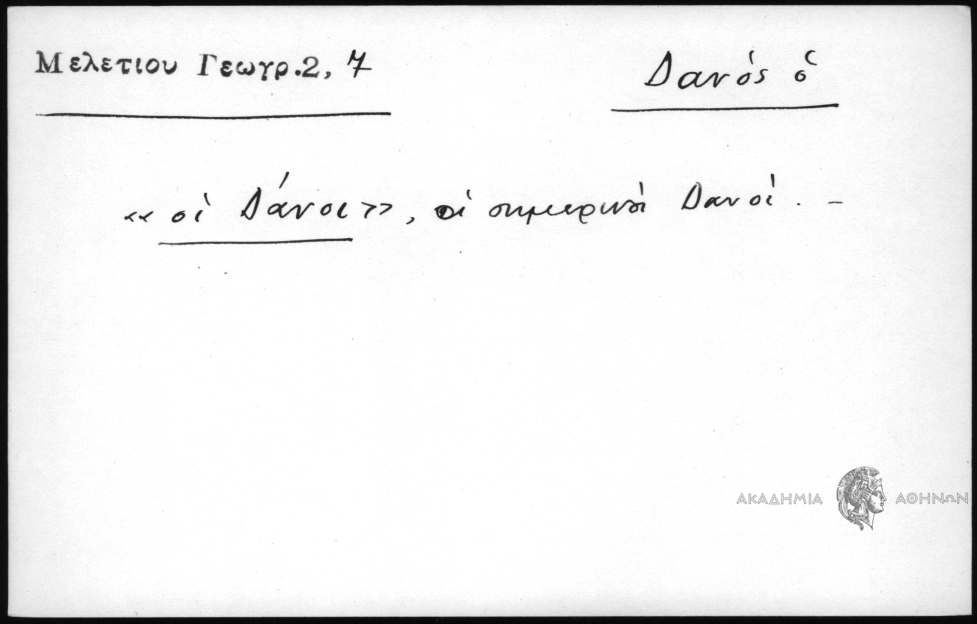 Μελετιου Γεωγρ.2, 7
Δανός ὁ
«οἱ Δάνοι», οἱ σημερινοὶ Δανοί. –
ΑΚΑΔΗΜΙΑ ΑΘΗΝΩΝ